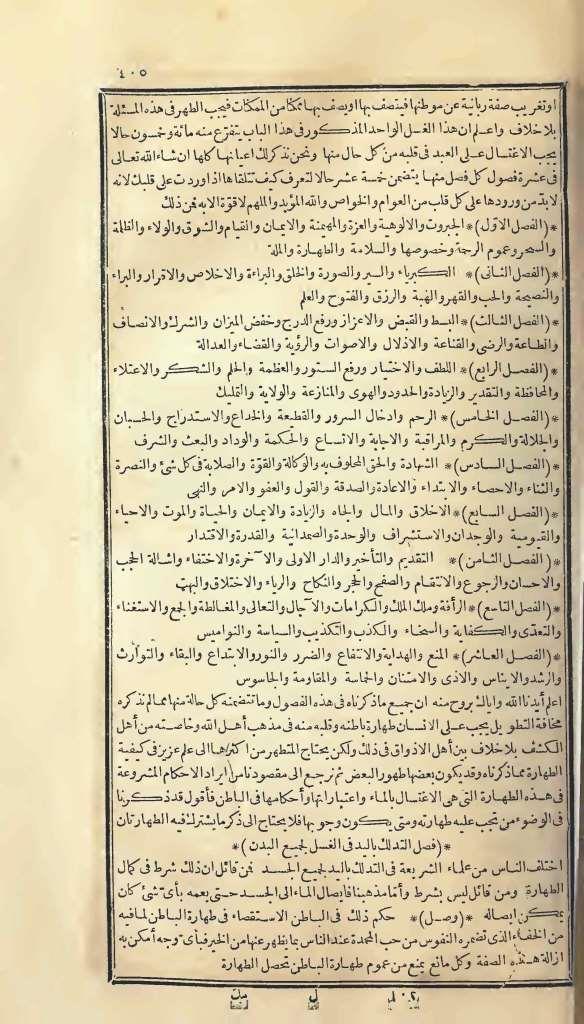 ٤٠٥
او تغريب صفة ربانية عن موطنها فيتصف بها او يصف بها ممكا من الممكات فيجب الطهر فى هذه المسئلة
بلا خلاف واعلم ان هذا الغسل الواحد المذكور فى هذا الباب يتفرع منه مائة وخمسون حالا
يجب الاغتسال على العبد فى قلبه من كل حال منها ونحن نذكر لك اعيانها كلها ان شاء الله تعالى
فى عشرة فصول كل فصل منها يتضمن خمسة عشر حالا لتعرف كيف تتلقاها اذا وردت على قلبك لانه
لا بد من ورودها على كل قلب من العوام والخواص والله المؤيد والملهم لا قوة الا به فمن ذلك
*(الفصل الاول)* الجبروت والالوهية والعزة والمهيمنة والايمان والقيام والشوق والولاء والظلمة
والسحر وعموم الرحمة وخصوصها والسلامة والطهارة والملة
*(الفصل الثانى)* الكبرياء والستر والصورة والخلق والبراءة والاخلاص والاقرار والبراء
والنصيحة والحب والقهر والهبة والرزق والفتوح والعلم
*(الفصل الثالث)* البسط والقبض والاعزاز ورفع الدرج وخفض الميزان والشرك والانصاف
والطاعة والرضى والقناعة والاذلال والاصوات والرؤية والقضاء والعدالة
*(الفصل الرابع)* اللطف والاختيار ورفع الستور والعظمة والحلم والشكر والاعتلاء
والمحافظة والتقدير والزيادة والحدود والهوى والمنازعة والولاية والتمليك
*(الفصل الخامس)* الرحم وادخال السرور والقطيعة والخداع والاستدراج والحسبان
والجلالة والكرم والمراقبة والاجابة والاتساع والحكمة والوداد والبعث والشرف
*(الفصل السادس)* الشهادة والحق المخلوف به والوكالة والقوة والصلابة فى كل شئ والنصرة
والثناء والاحصاء والابتداء والاعادة والصدقة والقول والعفو والامر والنهى
*(الفصل السابع)* الاخلاق والمال والجاه والزيادة والايمان والحياة والموت والاحياء
والقيومية والوجدان والاستشراف والوحدة والصمدانية والقدرة والاقتدار
*(الفصل الثامن)* التقديم والتأخير والدار الاولى والآخرة والاختفاء واشالة الحجب
والاحسان والرجوع والانتقام والصفح والحجر والنكاح والرياء والاختلاق والبهت
*(الفصل التاسع)* الرأفة وملك الملك والكرامات والآجال والتعالى والمغالطة والجمع والاستغناء
والتعدى والكفاية والسخاء والكذب والتكذيب والسياسة والنواميس
*(الفصل العاشر)* المنع والهداية والانتفاع والضرر والنور والابتداع والبقاء والتوارث
والرشد والايناس والاذى والامتنان والحماسة والمقاومة والجاسوس
اعلم أيدنا الله واياك بروح منه ان جميع ما ذكرناه فى هذه الفصول وما تتضمنه كل حالة منها مما لم نذكره
مخافة التطويل يجب على الانسان طهارة باطنه وقلبه منه فى مذهب أهل الله وخاصته من أهل
الكشف بلا خلاف بين أهل الاذواق فى ذلك ولكن يحتاج المتطهر من اكثرها الى علم عزيز فى كيفية
الطهارة مما ذكرناه وقد يكون بعضها طهور البعض ثم نرجع الى مقصودنا من ايراد الاحكام المشروعة
فى هذه الطهارة التى هى الاغتسال بالماء واعتباراتها وأحكامها فى الباطن فأقول قد ذكرنا
فى الوضوء من تجب عليه طهارته ومتى يكون وجوبها فلا يحتاج الى ذكر ما يشترك فيه الطهارتان
*(فصل التدلك باليد فى الغسل لجميع البدن)*
اختلف الناس من علماء الشريعة فى التدلك باليد لجميع الجسد فمن قائل ان ذلك شرط فى كمال
الطهارة ومن قائل ليس بشرط وأما مذهبنا فايصال الماء الى الجسد حتى يعمه بأى شئ كان
يمكن ايصاله *(وصل)* حكم ذلك فى الباطن الاستقصاء فى طهارة الباطن لما فيه
من الخفاء الذى تضمره النفوس من حب المحمدة عند الناس بما يظهر عنها من الخير فبأى وجه أمكن به
ازالة هذه الصفة وكل مانع يمنع من عموم طهارة الباطن تحصل الطهارة